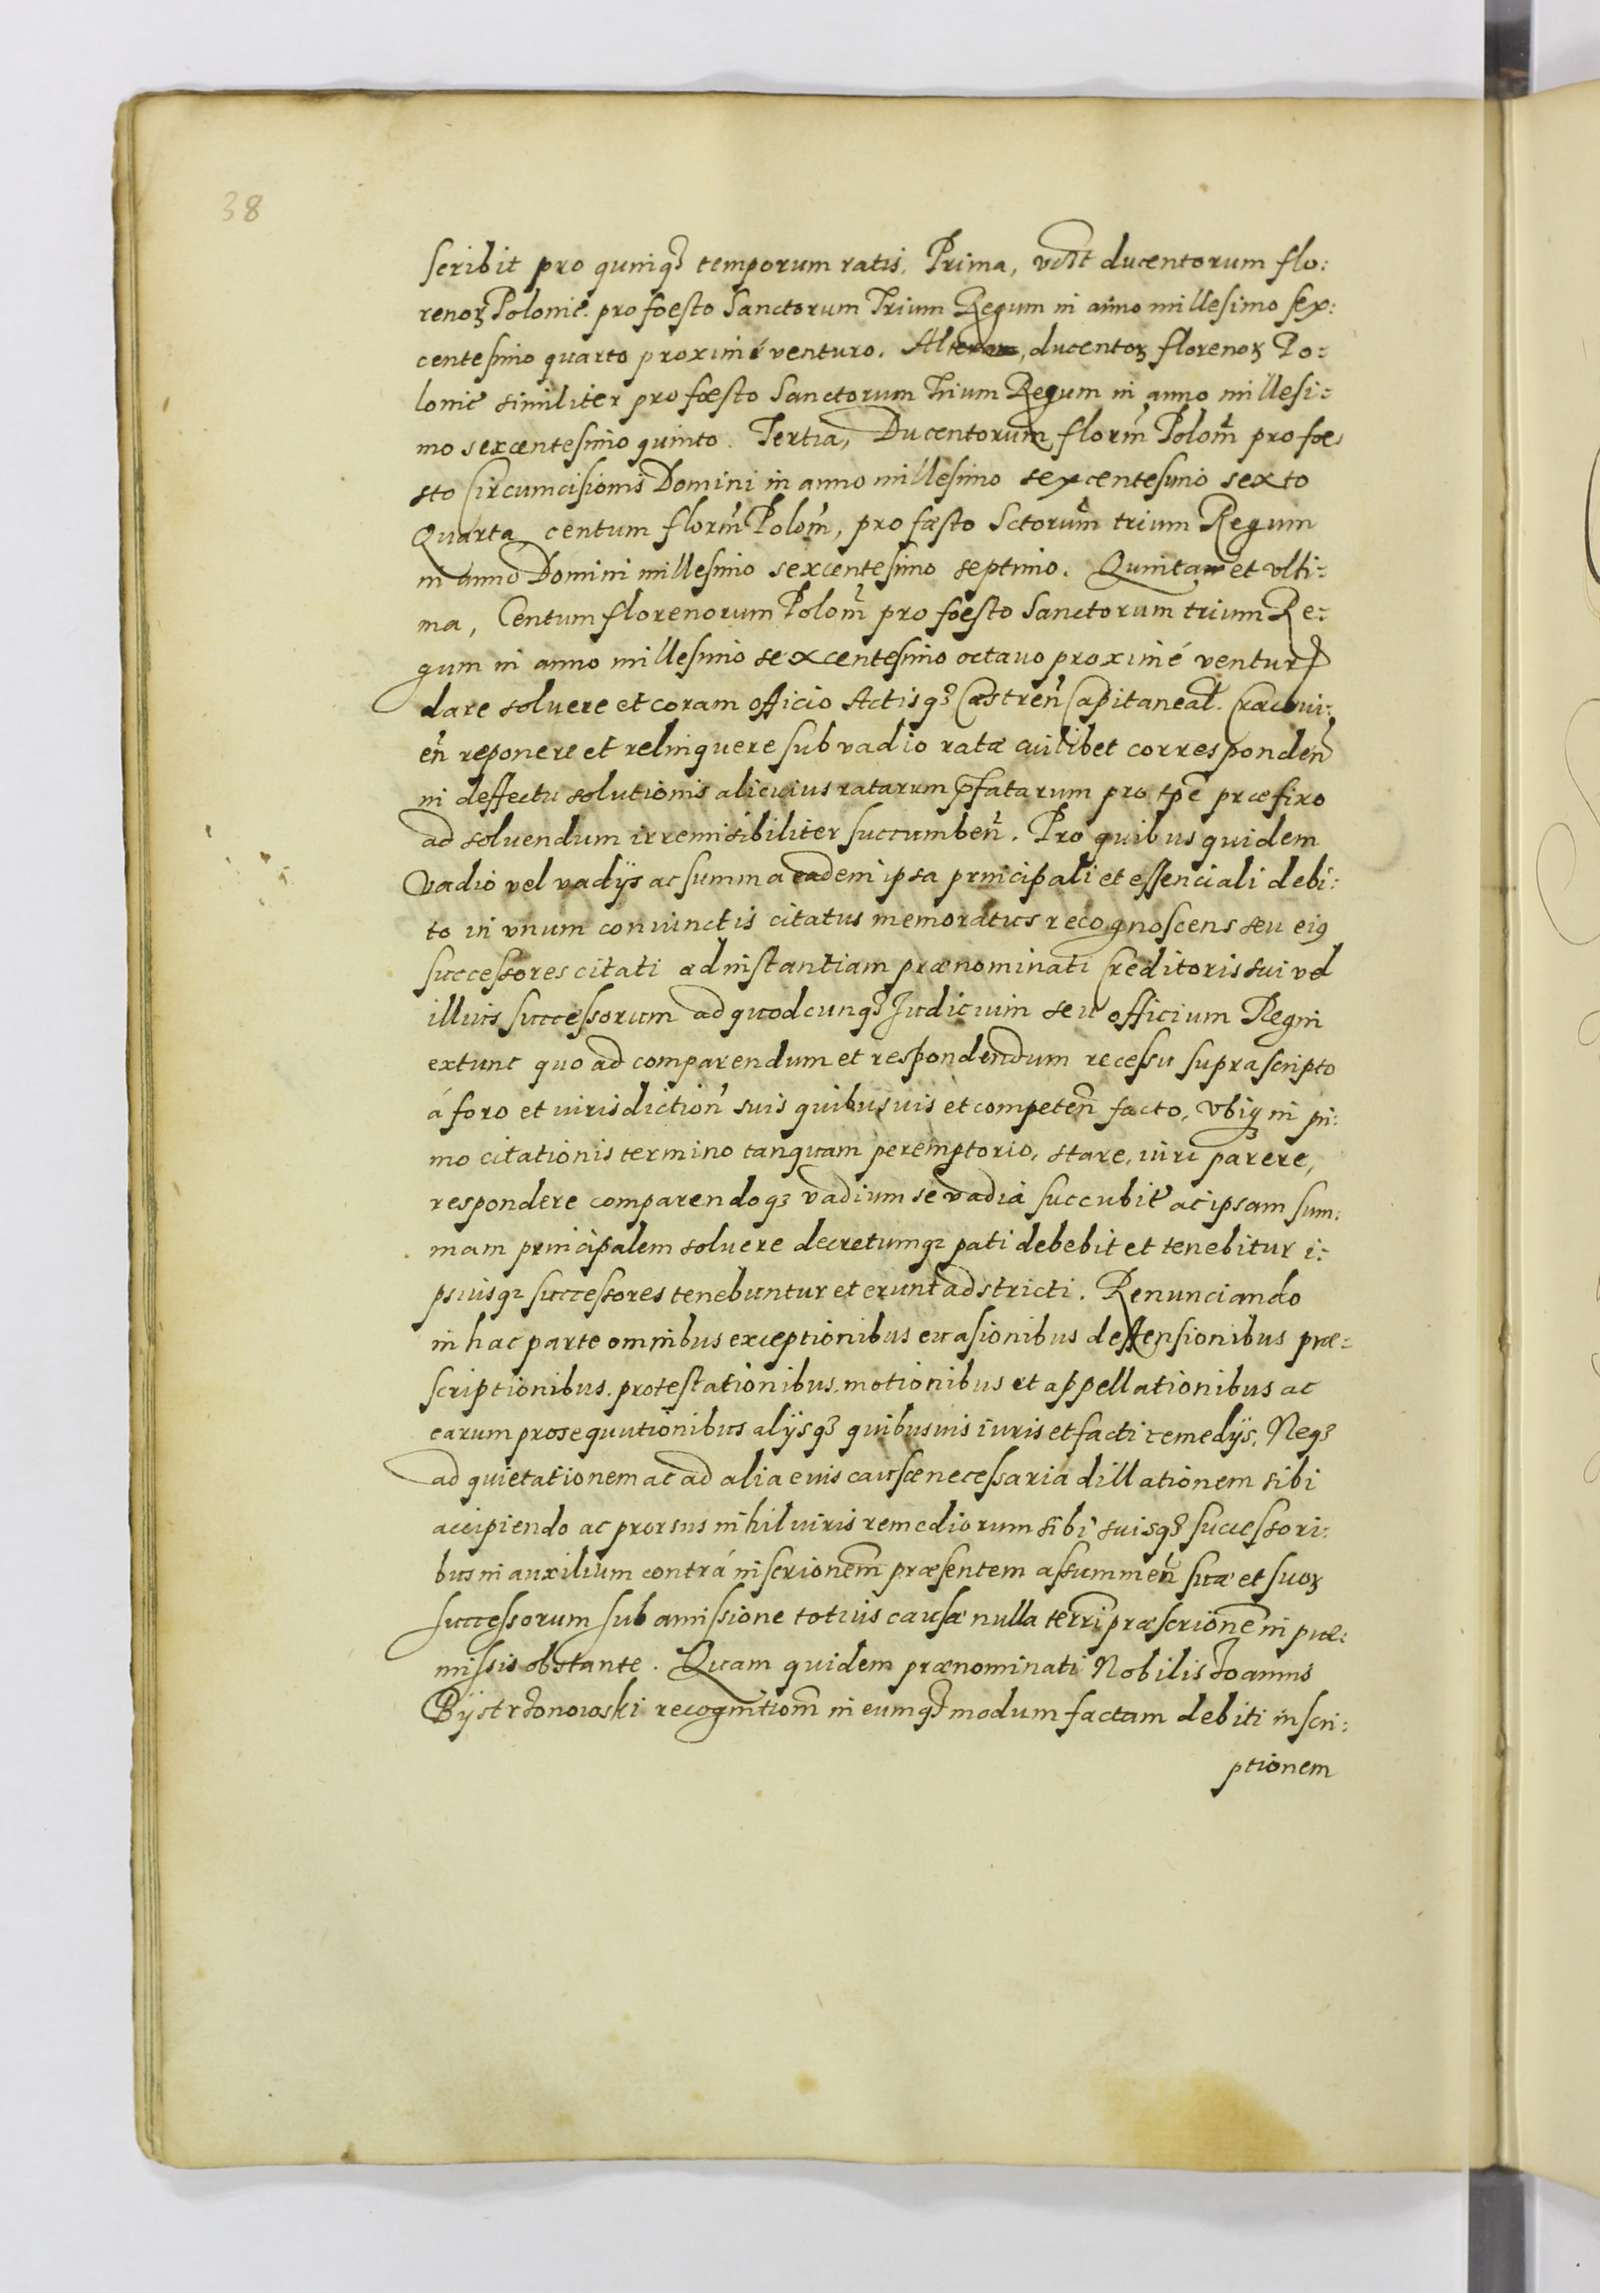 38
scribit pro quinqꝫ temporum ratis. Prima, vdꝫt ducentorum flo:
renoꝝ Polonic̃. pro foesto Sanctorum Trium Regum in anno millesimo sex:
centesimo quarto proximé venturo. Altera, ducentoꝝ florenoꝝ Po:
lonic̃ similiter pro foesto Sanctorum Trium Regum in anno millesi:
mo sexcentesimo quinto. Tertia, Ducentorum florm̃ Polom̃ pro foe:
sto Circumcisionis Domini in anno millesimo sexcentesimo sexto
Quarta centum florm̃ Polom̃, pro foesto Sctorum̃ trium Regum
in anno Domini millesimo sexcentesimo septimo. Quinta et vlti:
ma, Centum florenorum Polom̃ pro foesto Sanctorum trium Re:
gum in anno millesimo sexcentesimo octauo proximé ventur̃
dare soluere et coram officio Actisqꝫ Castren̄ Capitaneal̃. Cracoui:
en̄ reponere et relinquere sub vadio ratæ cuilibet corresponden̄
in deffectu solutionis alicuius ratarum p̄fatarum pro tp̄e præfixo
ad soluendum irremisibiliter succumben̄. Pro quibus quidem
vadio vel vadijs ac summa eadem ipsa principali et essenciali debi:
to in vnum coniunctis citatus memoratus recognoscens seu eiꝰ
successores citati ad instantiam prænominati Creditoris sui vel
illius successorum ad quodcunqꝫ Judicium seu officium Regni
extunc quo ad comparendum et respondendum recessu suprascripto
á foro et iurisdiction̄ suis quibusuis et competen̄ facto, vbiqꝫ in pri:
mo citationis termino tanquam peremptorio, stare, iuri parere,
respondere comparendoqꝫ vadium se vadia succubit̃ ac ipsam sum:
mam principalem soluere decretumqꝫ pati debebit et tenebitur i:
psiusqꝫ successores tenebuntur et erunt adstricti. Renunciando
in hac parte omnibus exceptionibus euasionibus deffensionibus præ:
scriptionibus. protestationibus. motionibus et appellationibus ac
earum prosequutionibus alijsqꝫ quibusuis iuris et facti remedijs, Neqꝫ
ad quietationem ac ad alia euis causæ necessaria dillationem sibi
accipiendo ac prorsus nihil iuris remediorum sibi suisqꝫ successori:
bus in auxilium contrá inscrionem̄ præsentem assummen̄ suæ et suoꝝ
successorum sub amissione totius causæ nulla terri præscrione in præ:
missis obstante. Quam quidem prænominati Nobilis Joannis
Bystrzonowski recognitiom̄ in eumqꝫ modum factam debiti inscri:
ptionem